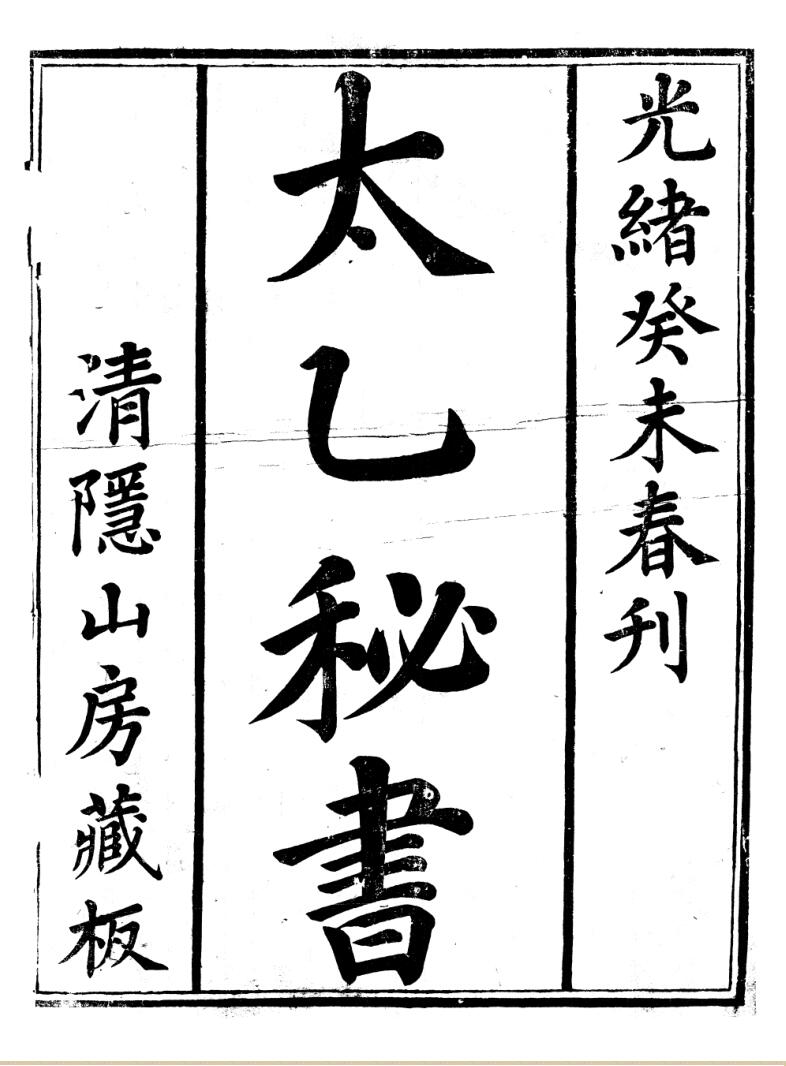 光緒癸未春刊
太乙秘書
清隱山房藏板